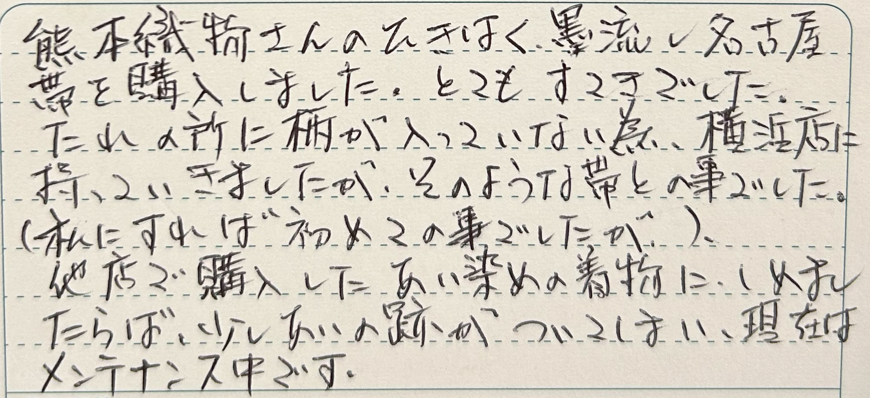 熊本織物さんのひきはく、墨流し名古屋
帯を購入しました。とてもすてきでした。
たれの所に柄が入っていない為、横浜店に
持っていきましたが、そのような帯との事でした。
(私にすれば初めての事でしたが、)、
他店で購入したあい染めの着物に、しめまし
たらば、少しあいの跡がついてしまい、現在は
メンテナンス中です。